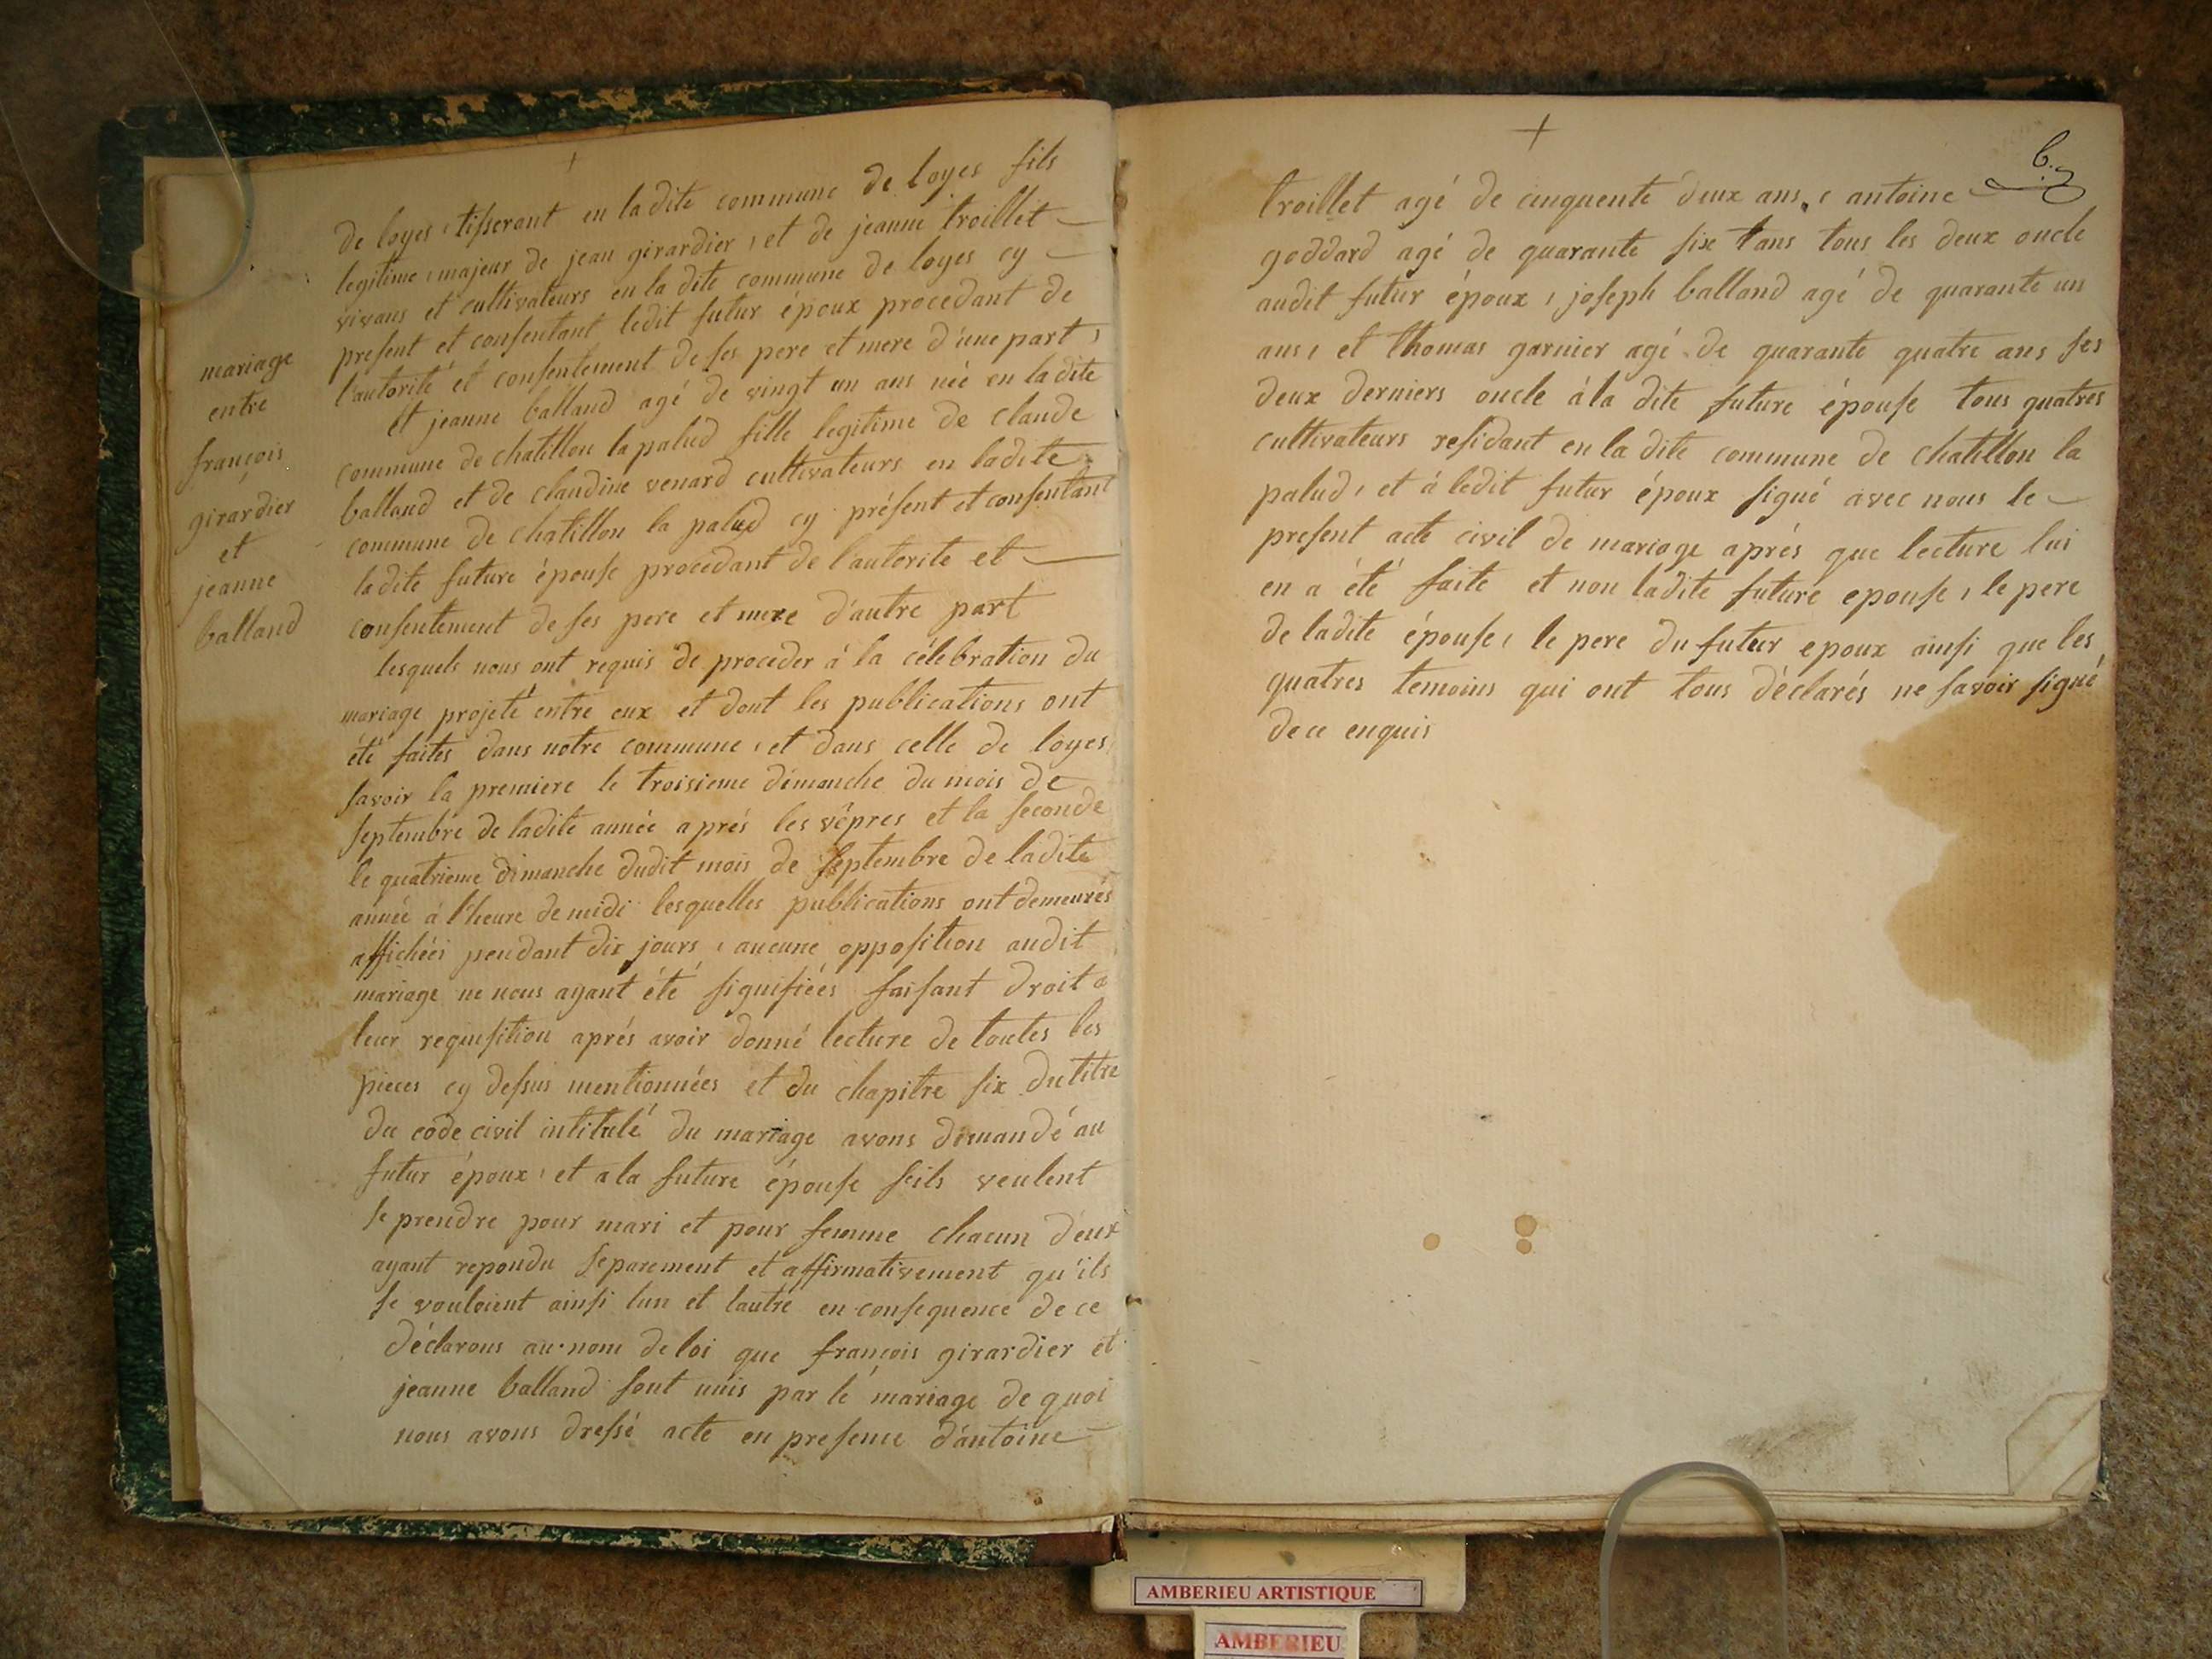 de loyes, tisserant en ladite commune de loyes fils
legitime, majeur de jean girardier, et de jeanne troillet
vivans et cultivateurs en la dite commune de loyes cy
present et consentant ledit futur époux procedant de
l'autorité et consentement de ses pere et mere d'une part,
mariage
entre
françois
girardier
et
jeanne
balland
et jeanne balland agé de vingt un ans née en ladite
commune de chatillon la palud fille legitime de claude
balland et de claudine venard cultivateurs en ladite
commune de chatillon la palud cy présent et consentant
ladite future épouse procedant de l'autorite et
consentement de ses pere et mere d'autre part
lesquels nous ont requis de proceder á la célebration du
mariage projeté entre eux et dont les publications ont
été faites dans notre commune, et dans celle de loyes,
savoir la premiere le troisieme dimanche du mois de
septembre de ladite année aprés les vêpres et la seconde
le quatrieme dimanche dudit mois de septembre de ladite
année á l'heure de midi lesquelles publications ont demeurés
affichéés pendant dix jours, aucune opposition audit
mariage ne nous ayant été signifiéés faisant droit a
leur requisition aprés avoir donné lecture de toutes les
pieces cy dessus mentionnées et du chapitre six du titre
du code civil intitulé du mariage avons demandé au
futur époux, et a la future épouse seils veulent
se prendre pour mari et pour femme chacun d'eux
ayant repondu separement et affirmativement qu'ils
se vouloient ainsi lun et lautre en consequence de ce
déclarons au nom de loi que françois girardier et
jeanne balland sont unis par le mariage de quoi
nous avons dressé acte en presence d'antoine
6.
troillet agé de cinquente deux ans, antoine
goddard agé de quarante six ans tous les deux oncle
audit futur époux, joseph balland agé de quarante un
ans, et thomas garnier agé de quarante quatre ans ses
deux derniers oncle á la dite future épouse tous quatres
cultivateurs residant en la dite commune de chatillon la
palud, et á ledit futur époux signé avec nous le
present acte civil de mariage aprés que lecture lui
en a été faite et non ladite future epouse, le pere
de ladite épouse, le pere du futur epoux ainsi que les
quatres temoins qui ont tous déclarés ne savoir signé
de ce enquis
AMBERIEU ARTISTIQUE
AMBERIEU